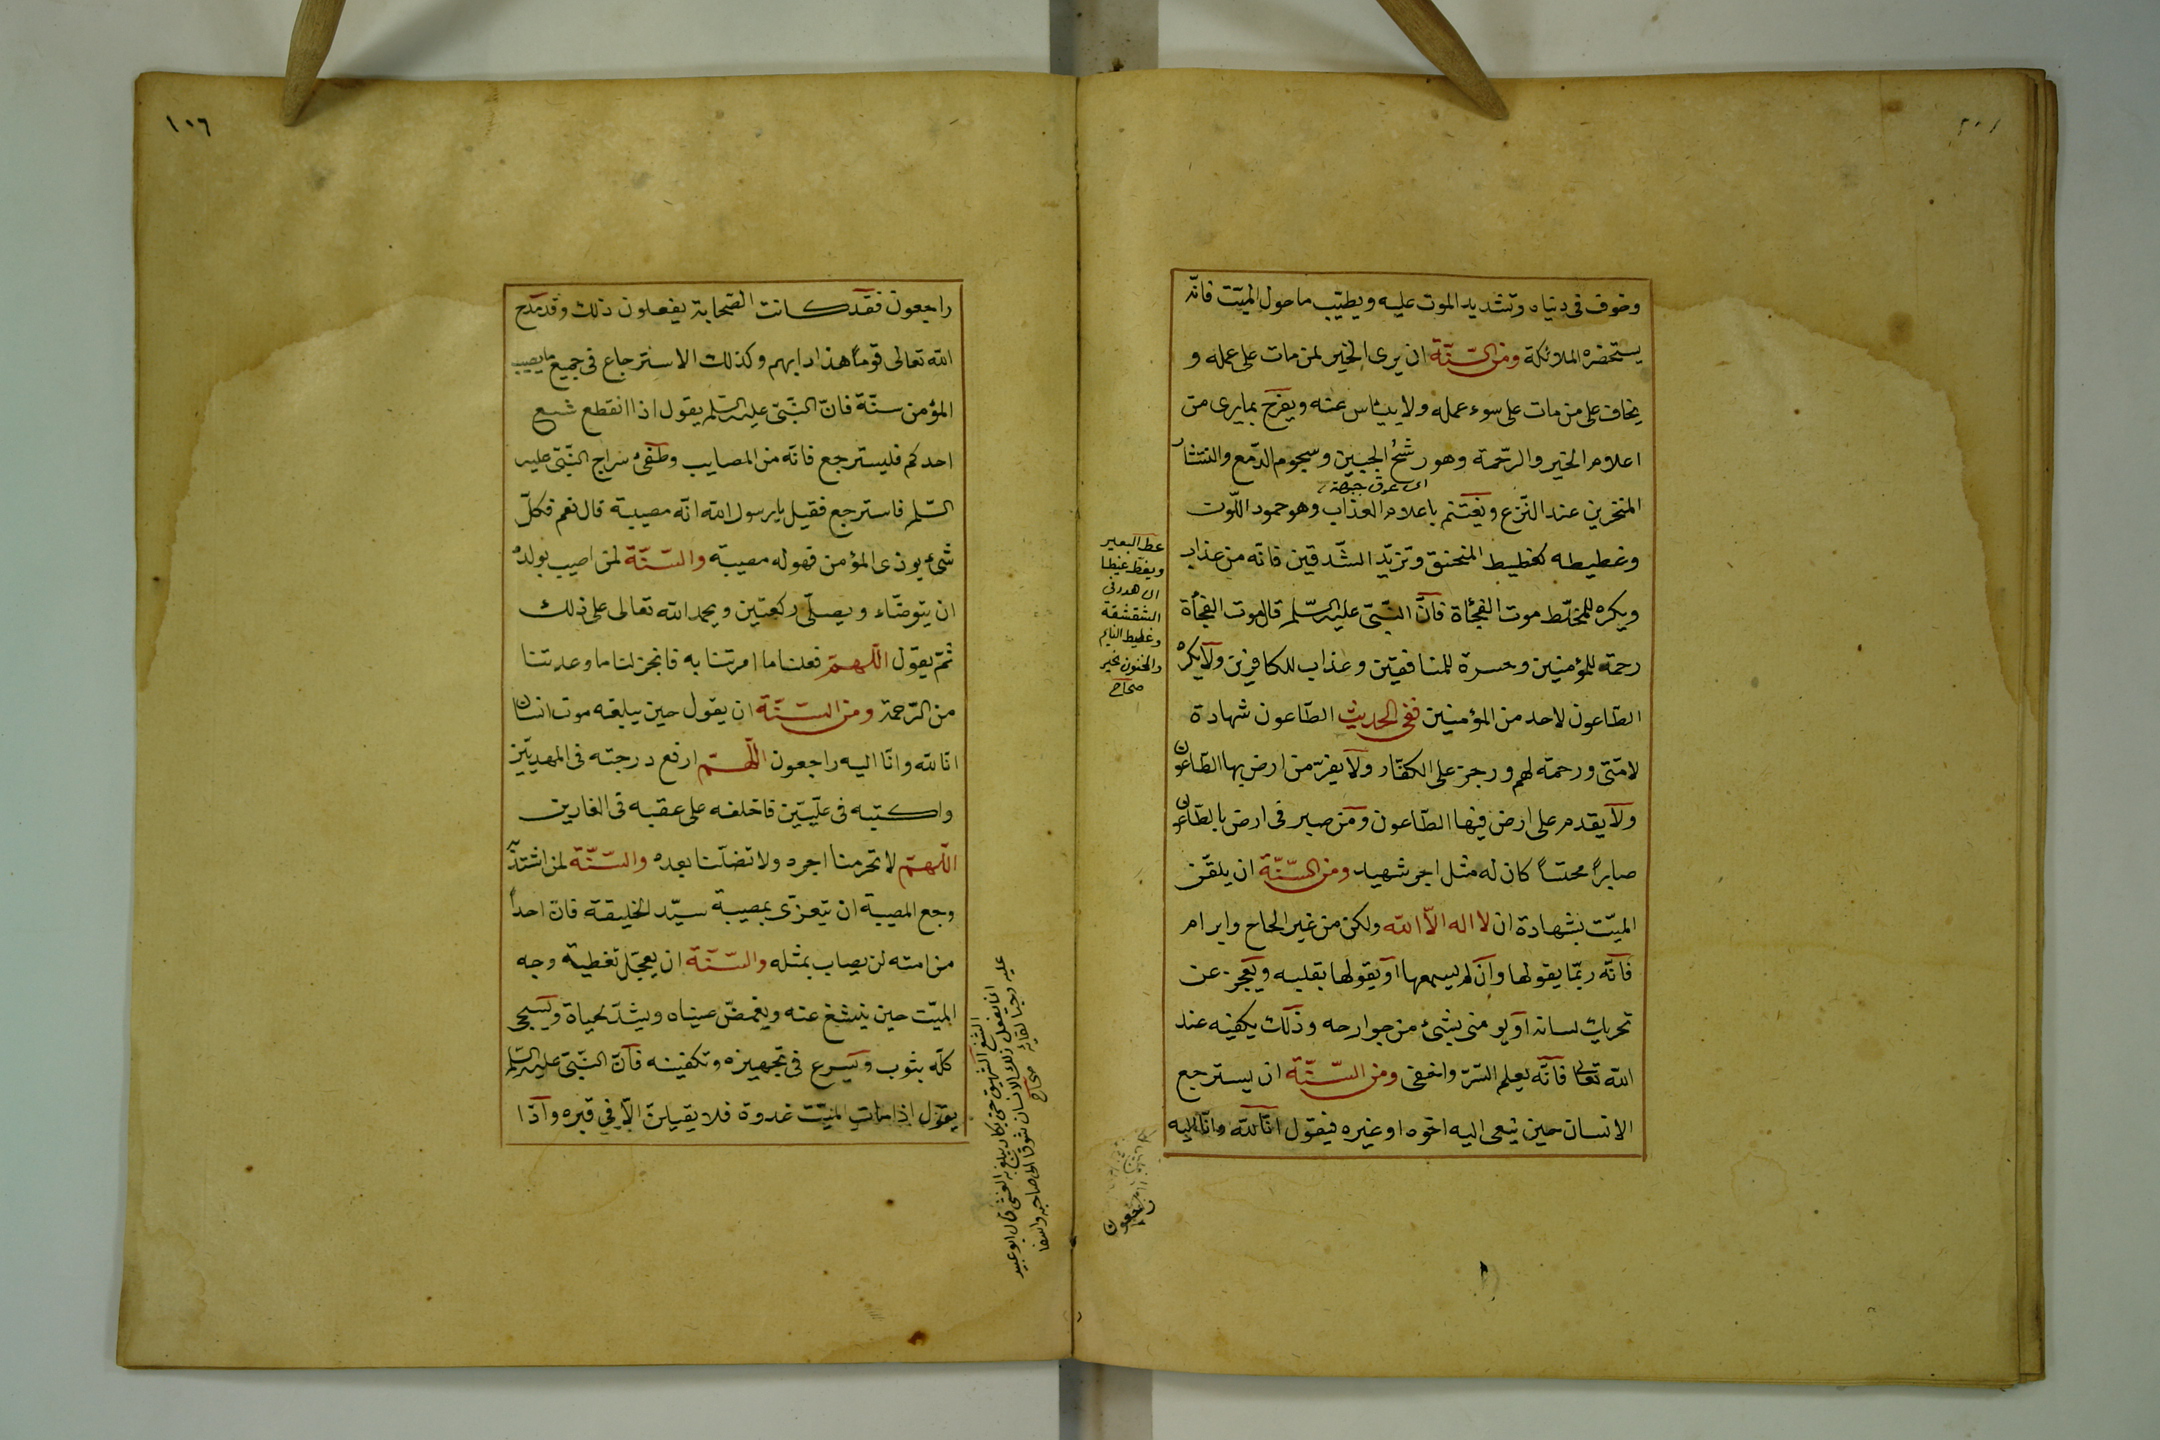 وخوف في دنياه وتشديد الموت عليه ويطيب ما حول الميت فانه
يستحضره الملائكة ومن السنة ان يرى الخير لمن مات على عمله و
يخاف على من مات على سوء عمله ولا ييأس عنه ويفرح بما يرى من
اعلام الخير والرحمة وهو رشح الجبين وسجوم الدمع وانتشار
اى عرق جبهة
المنخرين عند النزع ويغتنم باعلام العذاب وهو خمود اللون
وغطيطه كغطيط المنخنق وتزبد الشدقين فانه من عذاب
ويكره للمخلط موت الفجأة فان النبي عليه السلم قال موت الفجأة
رحمة للمؤمنين وحسرة للمنافقين وعذاب للكافرين ولا يكره
الطاعون لاحد من المؤمنين ففي الحديث الطاعون شهادة
لامتى ورحمة لهم ورجز على الكفار ولا يفر من ارض بها الطاعون
ولا يقدم على ارض فيها الطاعون ومن صبر في ارض بالطاعون
صابرا محتسبا كان له مثل اجر شهيد ومن السنة ان يلقن
الميت بشهادة ان لا اله الا الله ولكن من غير الحاح وابرام
فانه ربما يقولها وان لم يسمعها او يقولها بقلبه ويعجز عن
تحريك لسانه او يومى بشئ من جوارحه وذلك يكفيه عند
الله تعالى فانه يعلم السر واخفى ومن السنة ان يسترجع
الانسان حين ينعى اليه اخوه او غيره فيقول انا لله وانا اليه
راجعون
غط البعير
ويغط غطيطا
اى هدر في
الشقشقة
وغطيط النايم
والمخنوق نخير
صحاح
١٠٦
راجعون فقد كانت الصحابة يفعلون ذلك وقد مدح
الله تعالى قوما هذا دابهم وكذلك الاسترجاع في جميع ما يصيب
المؤمن سنة فان النبي عليه السلم يقول اذا انقطع شسع
احدكم فليسترجع فانه من المصايب وطفئ سراج النبي عليه
السلم فاسترجع فقيل يا رسول الله انه مصيبة قال نعم فكل
شئ يوذى المؤمن فهو له مصيبة والسنة لمن اصيب بولده
ان يتوضاء ويصلى ركعتين ويحمد الله تعالى على ذلك
ثم يقول اللهم فعلنا ما امرتنا به فانجز لنا ما وعدتنا
من الرحمة ومن السنة ان يقول حين يبلغه موت انسان
انا لله وانا اليه راجعون اللهم ارفع درجته في المهديين
واكتبه في عليين فاخلفه على عقبه في الغابرين
اللهم لا تحرمنا اجره ولا تضلنا بعده والسنة لمن اشتد به
وجع المصيبة ان يتعزى بمصيبة سيد الخليقة فان احدا
من امته لن يصاب بمثله والسنة ان يعجل تغطية وجه
الميت حين ينشغ عنه ويغمض عيناه ويشد لحياه ويسجى
كله بثوب ويسرع في تجهيزه وتكفينه فان النبي عليه السلم
يقول اذا مات الميت غدوة فلا يقيلن الا في قبره واذا
النشغ الشهيق حتى يكاد يبلغ به الغشى قال ابو عبيد
انما يفعل ذلك الانسان شوقا الى صاحبه واسفا
عليه وحبا للقائه صحاح